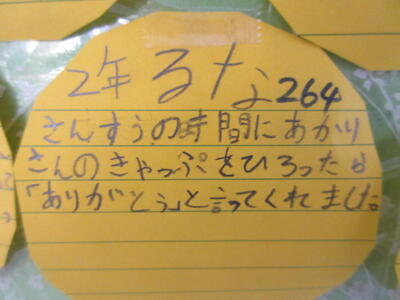 2年 るな 264
さんすうの時間にあかり
さんのきゃっぷをひろったら
「ありがとう」と言ってくれました。